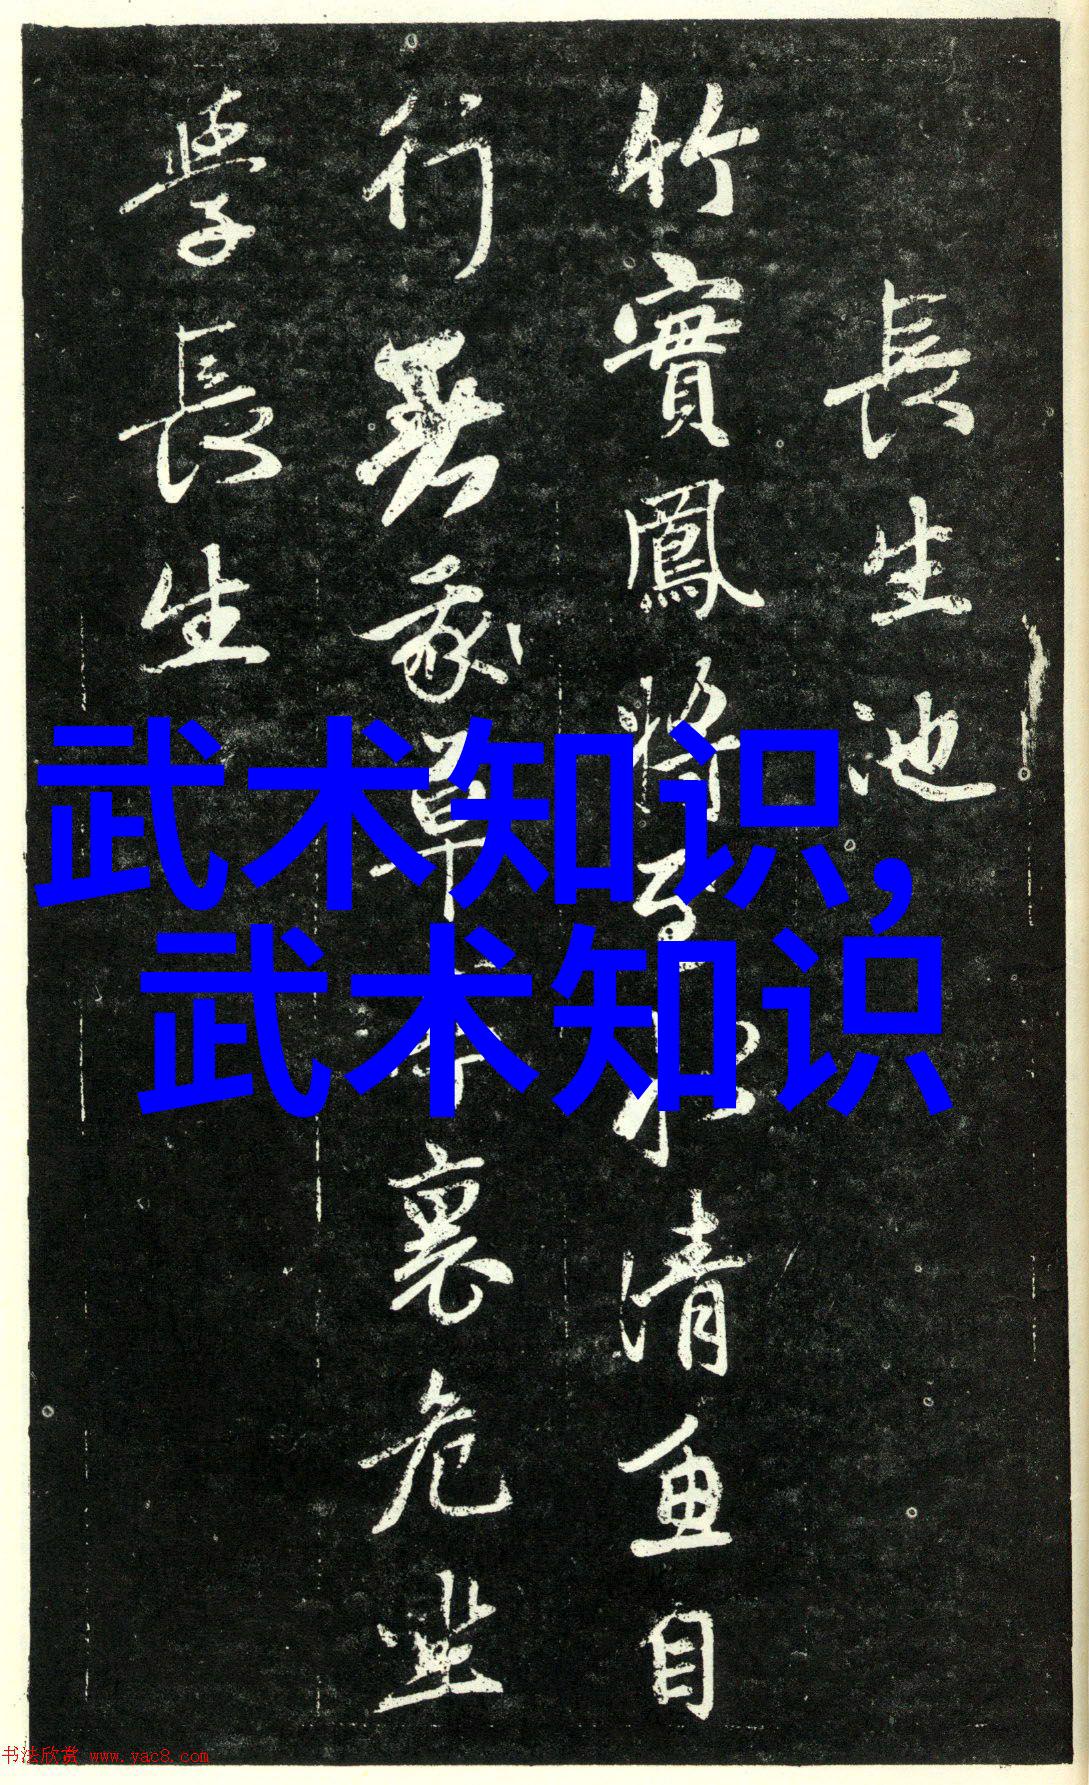 長生池
竹實鳳將至水清魚自
行吾家草本裏危坐
學長生
武术知识,
武术知识
书法欣赏 www.yac8.com